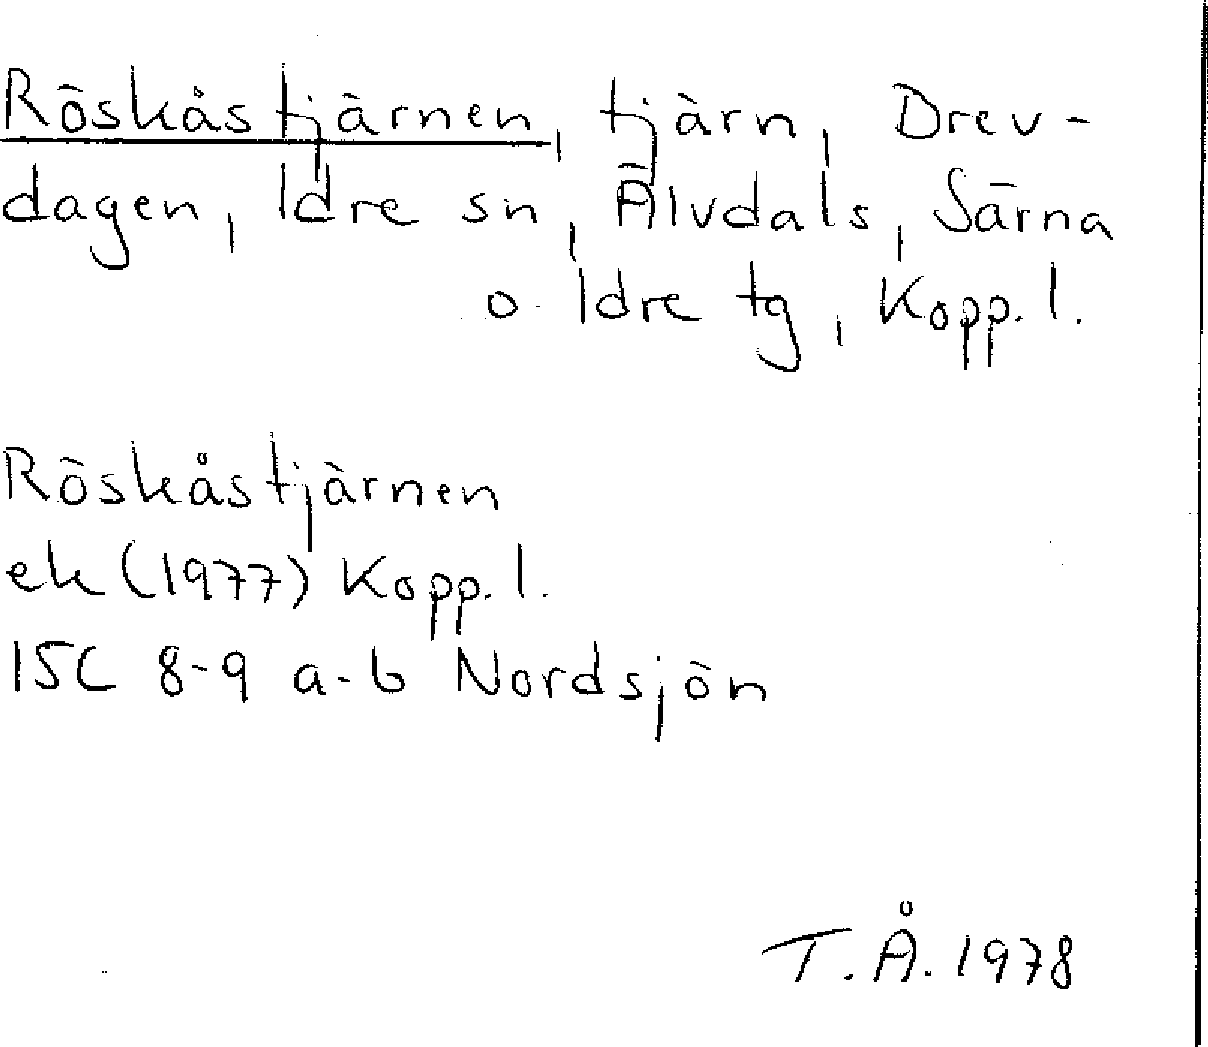 Röskåstjärnen, tjärn, Drev-
dagen, Idre sn, Älvdals, Särna
o. Idre tg, Kopp. l.
Röskåstjärnen
ek (1977) Kopp. l.
15C 8-9 a-b Nordsjön
T.Å. 1978